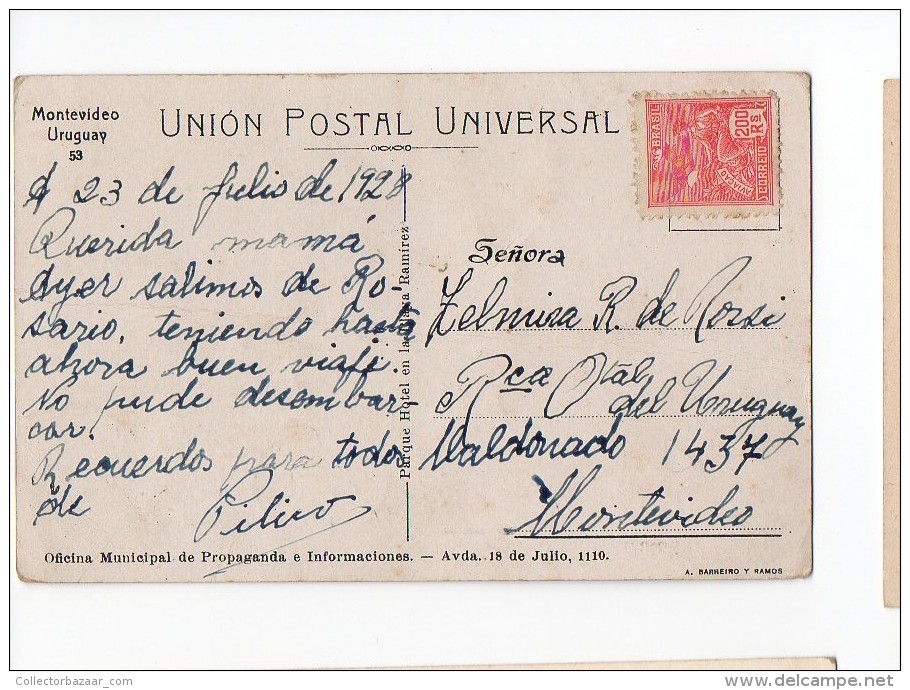 Montevideo
Uruguay
53
UNIÓN POSTAL UNIVERSAL
BRASIL
200 Rs
CORREIO
AVIAÇÃO
23 de Julio de 1928
Querida mamá
Ayer salimos de Ro-
sario, teniendo hasta
ahora buen viaje.
No pude desembar-
car.
Recuerdos para todos
de
Parque Hotel en la playa Ramírez
Señora
Zelmira R. de Rossi
Rca Otal
del Uruguay
Maldonado 1437
Montevideo
Oficina Municipal de Propaganda e Informaciones. — Avda. 18 de Julio, 1110.
A. BARREIRO Y RAMOS
CollectorBazaar_com
delcampe.net